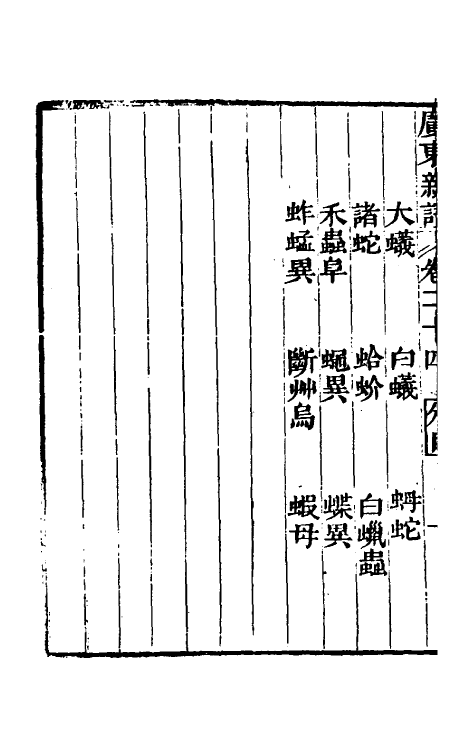 廣東新語 卷二十四
大蟻 白蟻 蚺蛇
諸蛇 蛤蚧 白蠟蟲
禾蟲阜 蠅異 蝶異
蚱蜢異 斷艸烏 蝦母